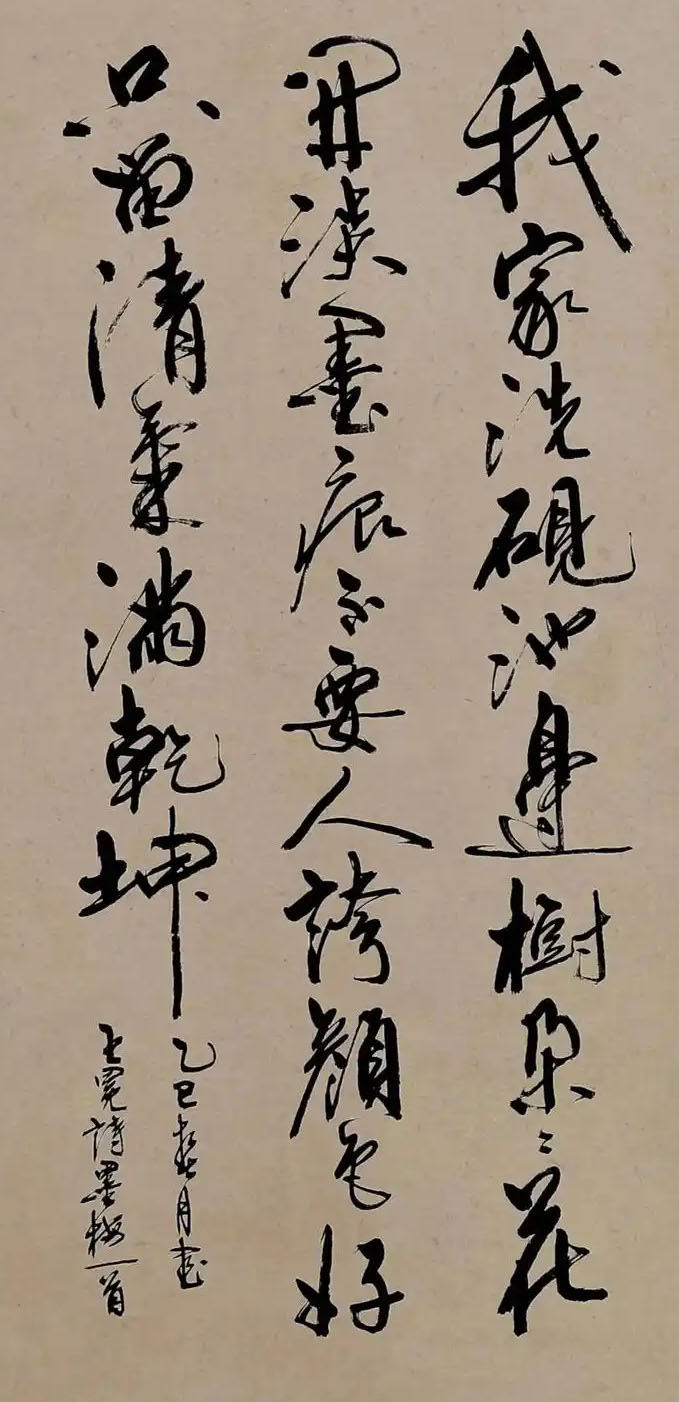 我家洗硯池邊樹朶〻花
開淡墨痕不要人誇顏色好
只留清氣滿乾坤
乙巳春月書
王冕詩墨梅一首